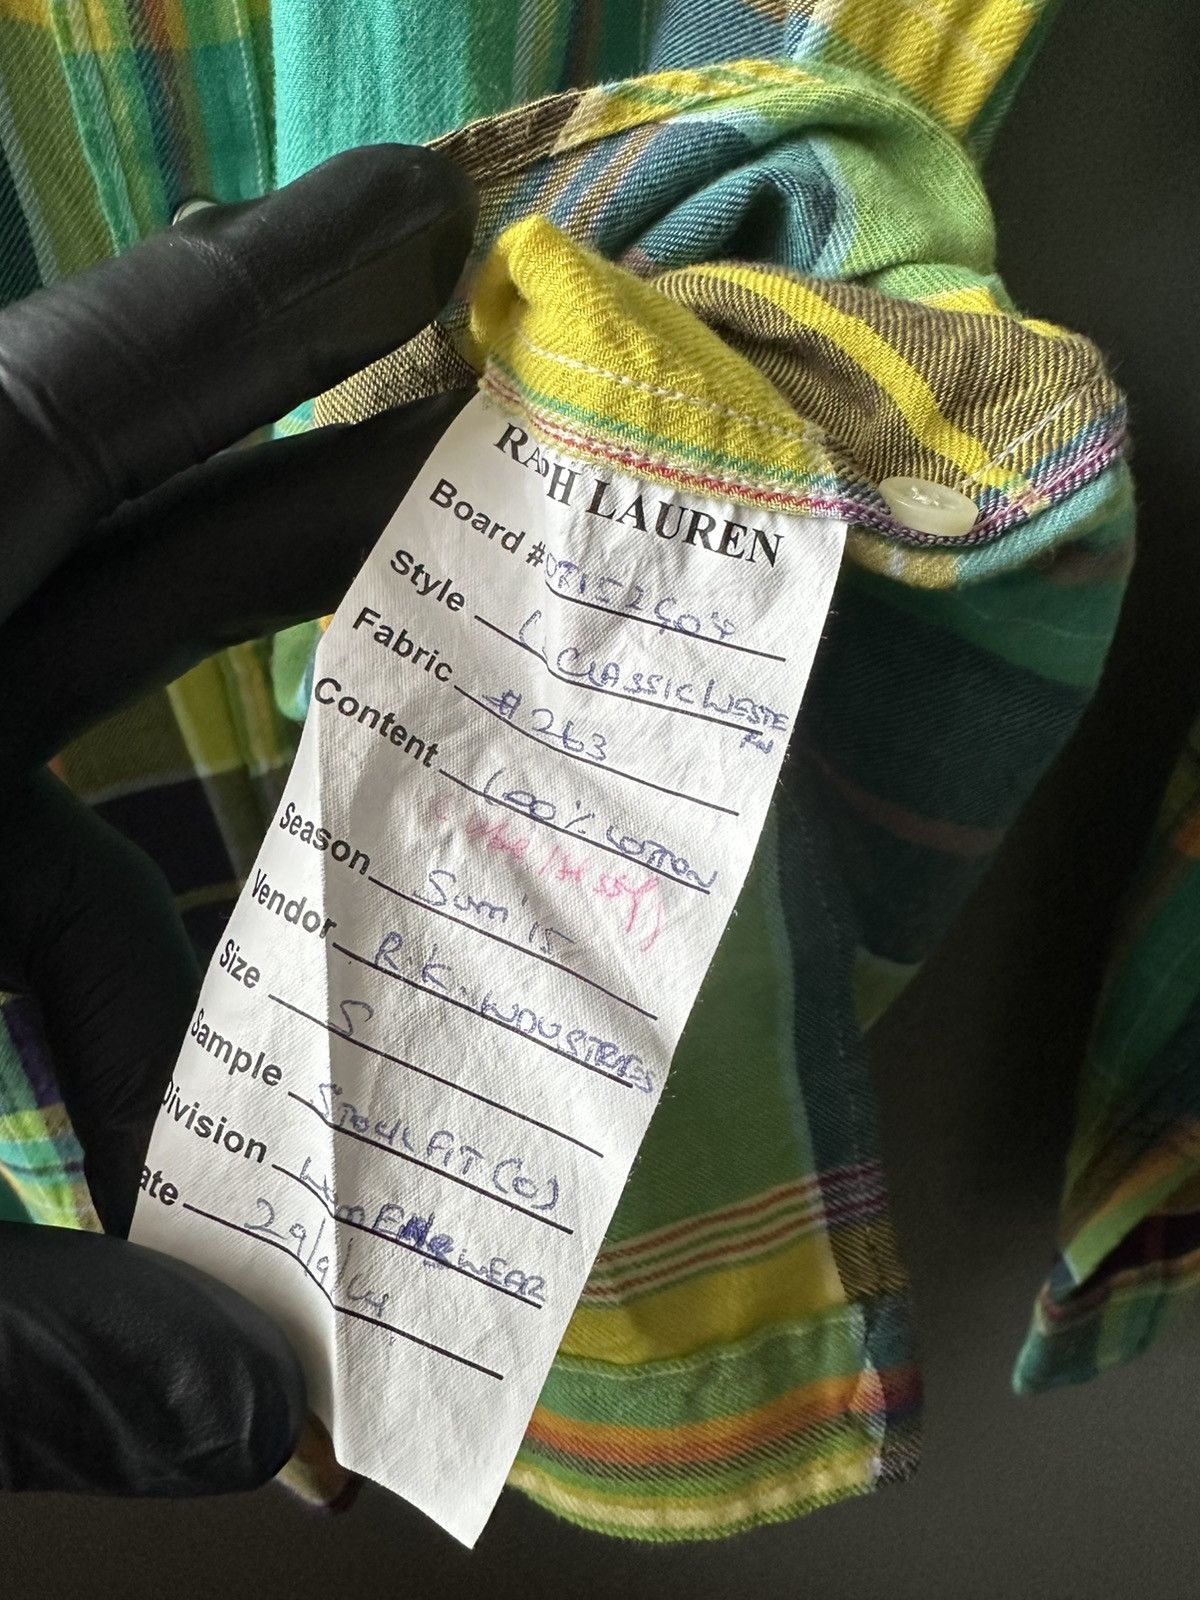 RALPH LAUREN
Board #
Style L. CLASSIC WESTE
RN
Fabric #263
Content 100% COTTON
Season Sum'15
Vendor R.K. INDUSTRIES
Size S
Sample STOCK FIT (O)
Division WOMEN WEAR
ate 29/9/14